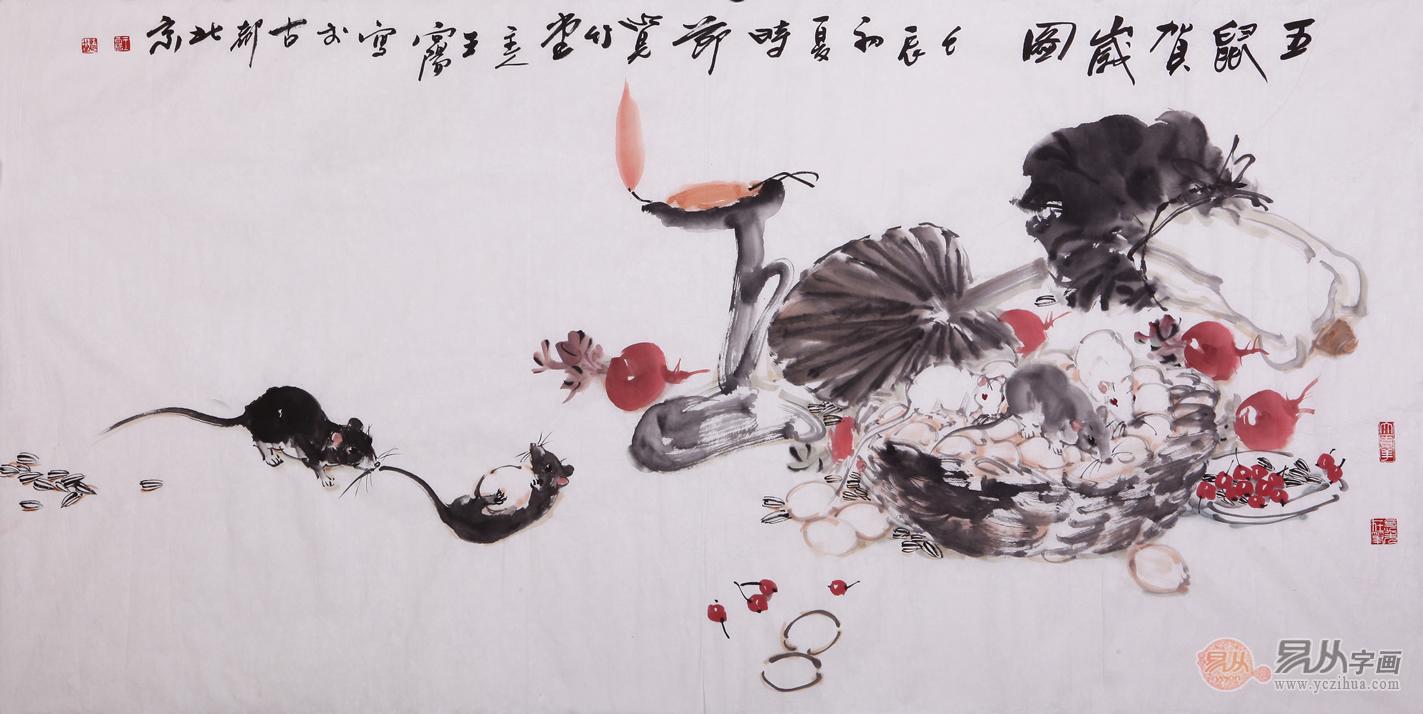 五鼠賀歲圖 壬辰初夏時節 竹堂主人王 寫於古都北京
易从字画
www.yczihua.com